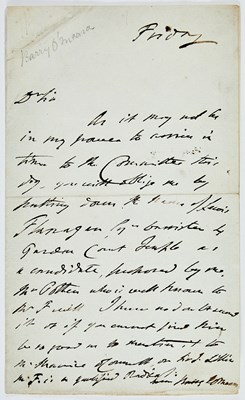 Barry O'Meara
Friday
Dr Sir
As it may not be
in my power to arrive in
time to the Committee this
day, you will oblige me by
putting down the name of Lewis
Flanagan Esqr barrister
Garden Court Temple as
a candidate, proposed by me,
who is well known to
Mr F will I have no doubt second
it or if you cannot find him
be so good as to mention it to
Mr Maurice
Mr F. is a qualified Radical